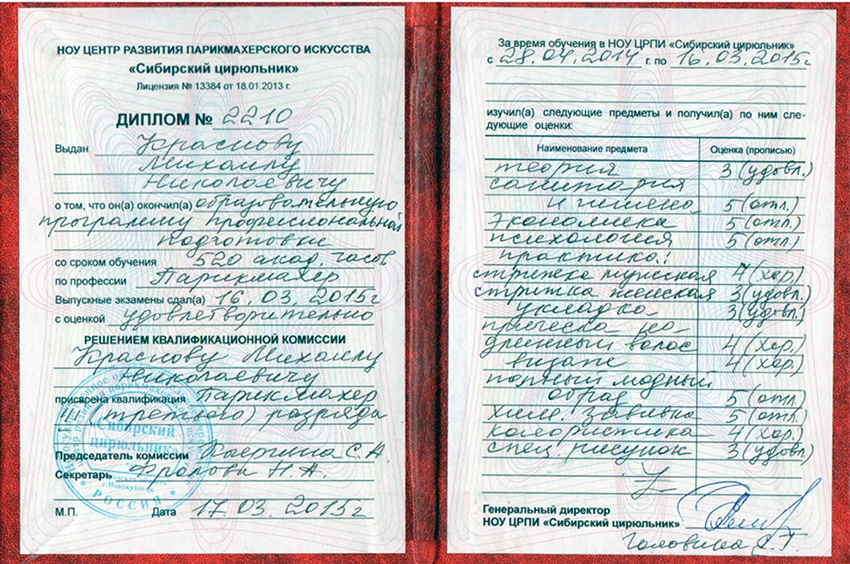 НОУ ЦЕНТР РАЗВИТИЯ ПАРИКМАХЕРСКОГО ИСКУССТВА
«Сибирский цирюльник»
Лицензия № 13384 от 18.01.2013 г.
ДИПЛОМ № 2210
Выдан Краснову
Михаилу
Николаевичу
о том, что он(а) окончил(а) образовательную
программу профессиональной
подготовки
со сроком обучения 520 акад. часов
по профессии Парикмахер
Выпускные экзамены сдал(а) 16.03.2015г
с оценкой удовлетворительно
РЕШЕНИЕМ КВАЛИФИКАЦИОННОЙ КОМИССИИ
Краснову Михаилу
Николаевичу
присвоена квалификация Парикмахер
III (третьего) разряда
Председатель комиссии С.А.
Секретарь Фролова Н.А.
М.П. Дата 17.03.2015г
«Сибирский
цирюльник»
г.Новокузнецк
РОССИЯ
За время обучения в НОУ ЦРПИ «Сибирский цирюльник»
с 28.04.2014 г. по 16.03.2015г
изучил(а) следующие предметы и получил(а) по ним сле-
дующие оценки:
Наименование предмета Оценка (прописью)
теория 3 (удовл.)
санитария
и гигиена 5 (отл.)
экономика 5 (отл.)
психология 5 (отл.)
практика:
стрижка мужская 4 (хор.)
стрижка женская 3 (удовл.)
укладка 3 (удовл.)
прическа из
длинных волос 4 (хор.)
визаж 4 (хор.)
полный модный
образ 5 (отл.)
хим. завивка 5 (отл.)
колористика 4 (хор.)
спец. рисунок 3 (удовл)
Генеральный директор
НОУ ЦРПИ «Сибирский цирюльник»
Головина С.Г.